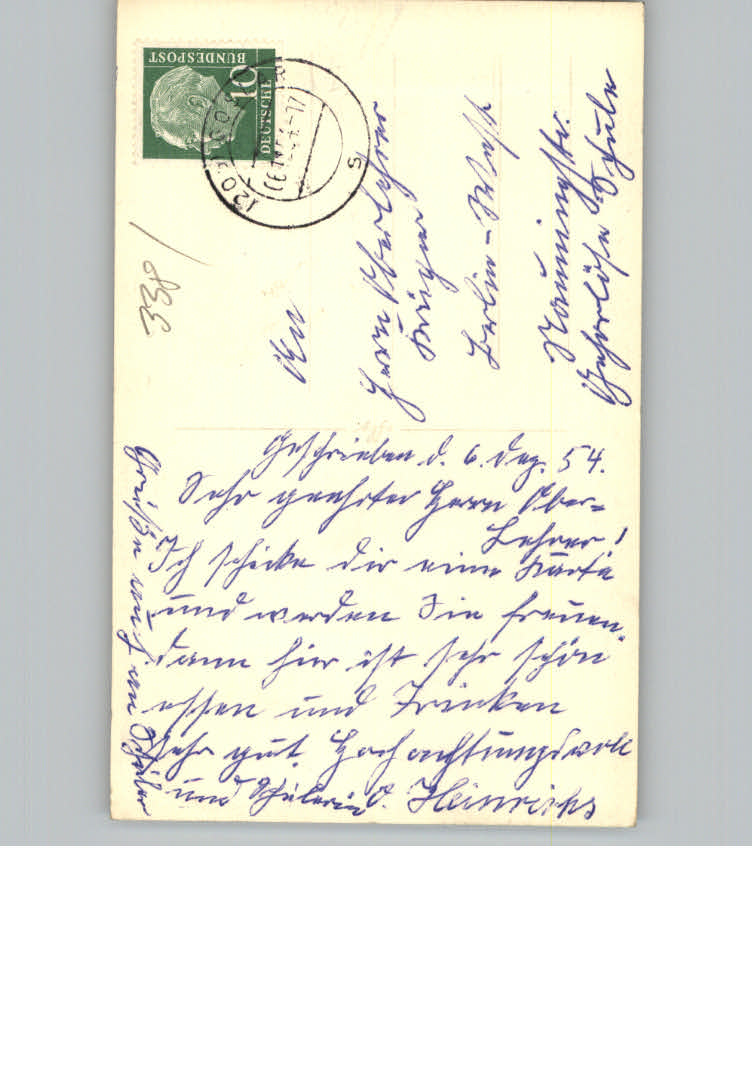 DEUTSCHE
BUNDESPOST
10
338
An
Herrn Oberlehrer
Krüger
Berlin-West
Naunynstr.
Gehörlose Schule
Geschrieben d. 6. Dez. 54.
Sehr geehrter Herrn Ober=
Lehrer!
Ich schicke dir eine Karte
und werden Sie freuen.
dann hier ist sehr schön
essen und Trinken
sehr gut. Hochachtungsvoll
O. Heinrichs
Grüßen auch an Schüler
und Schülerin